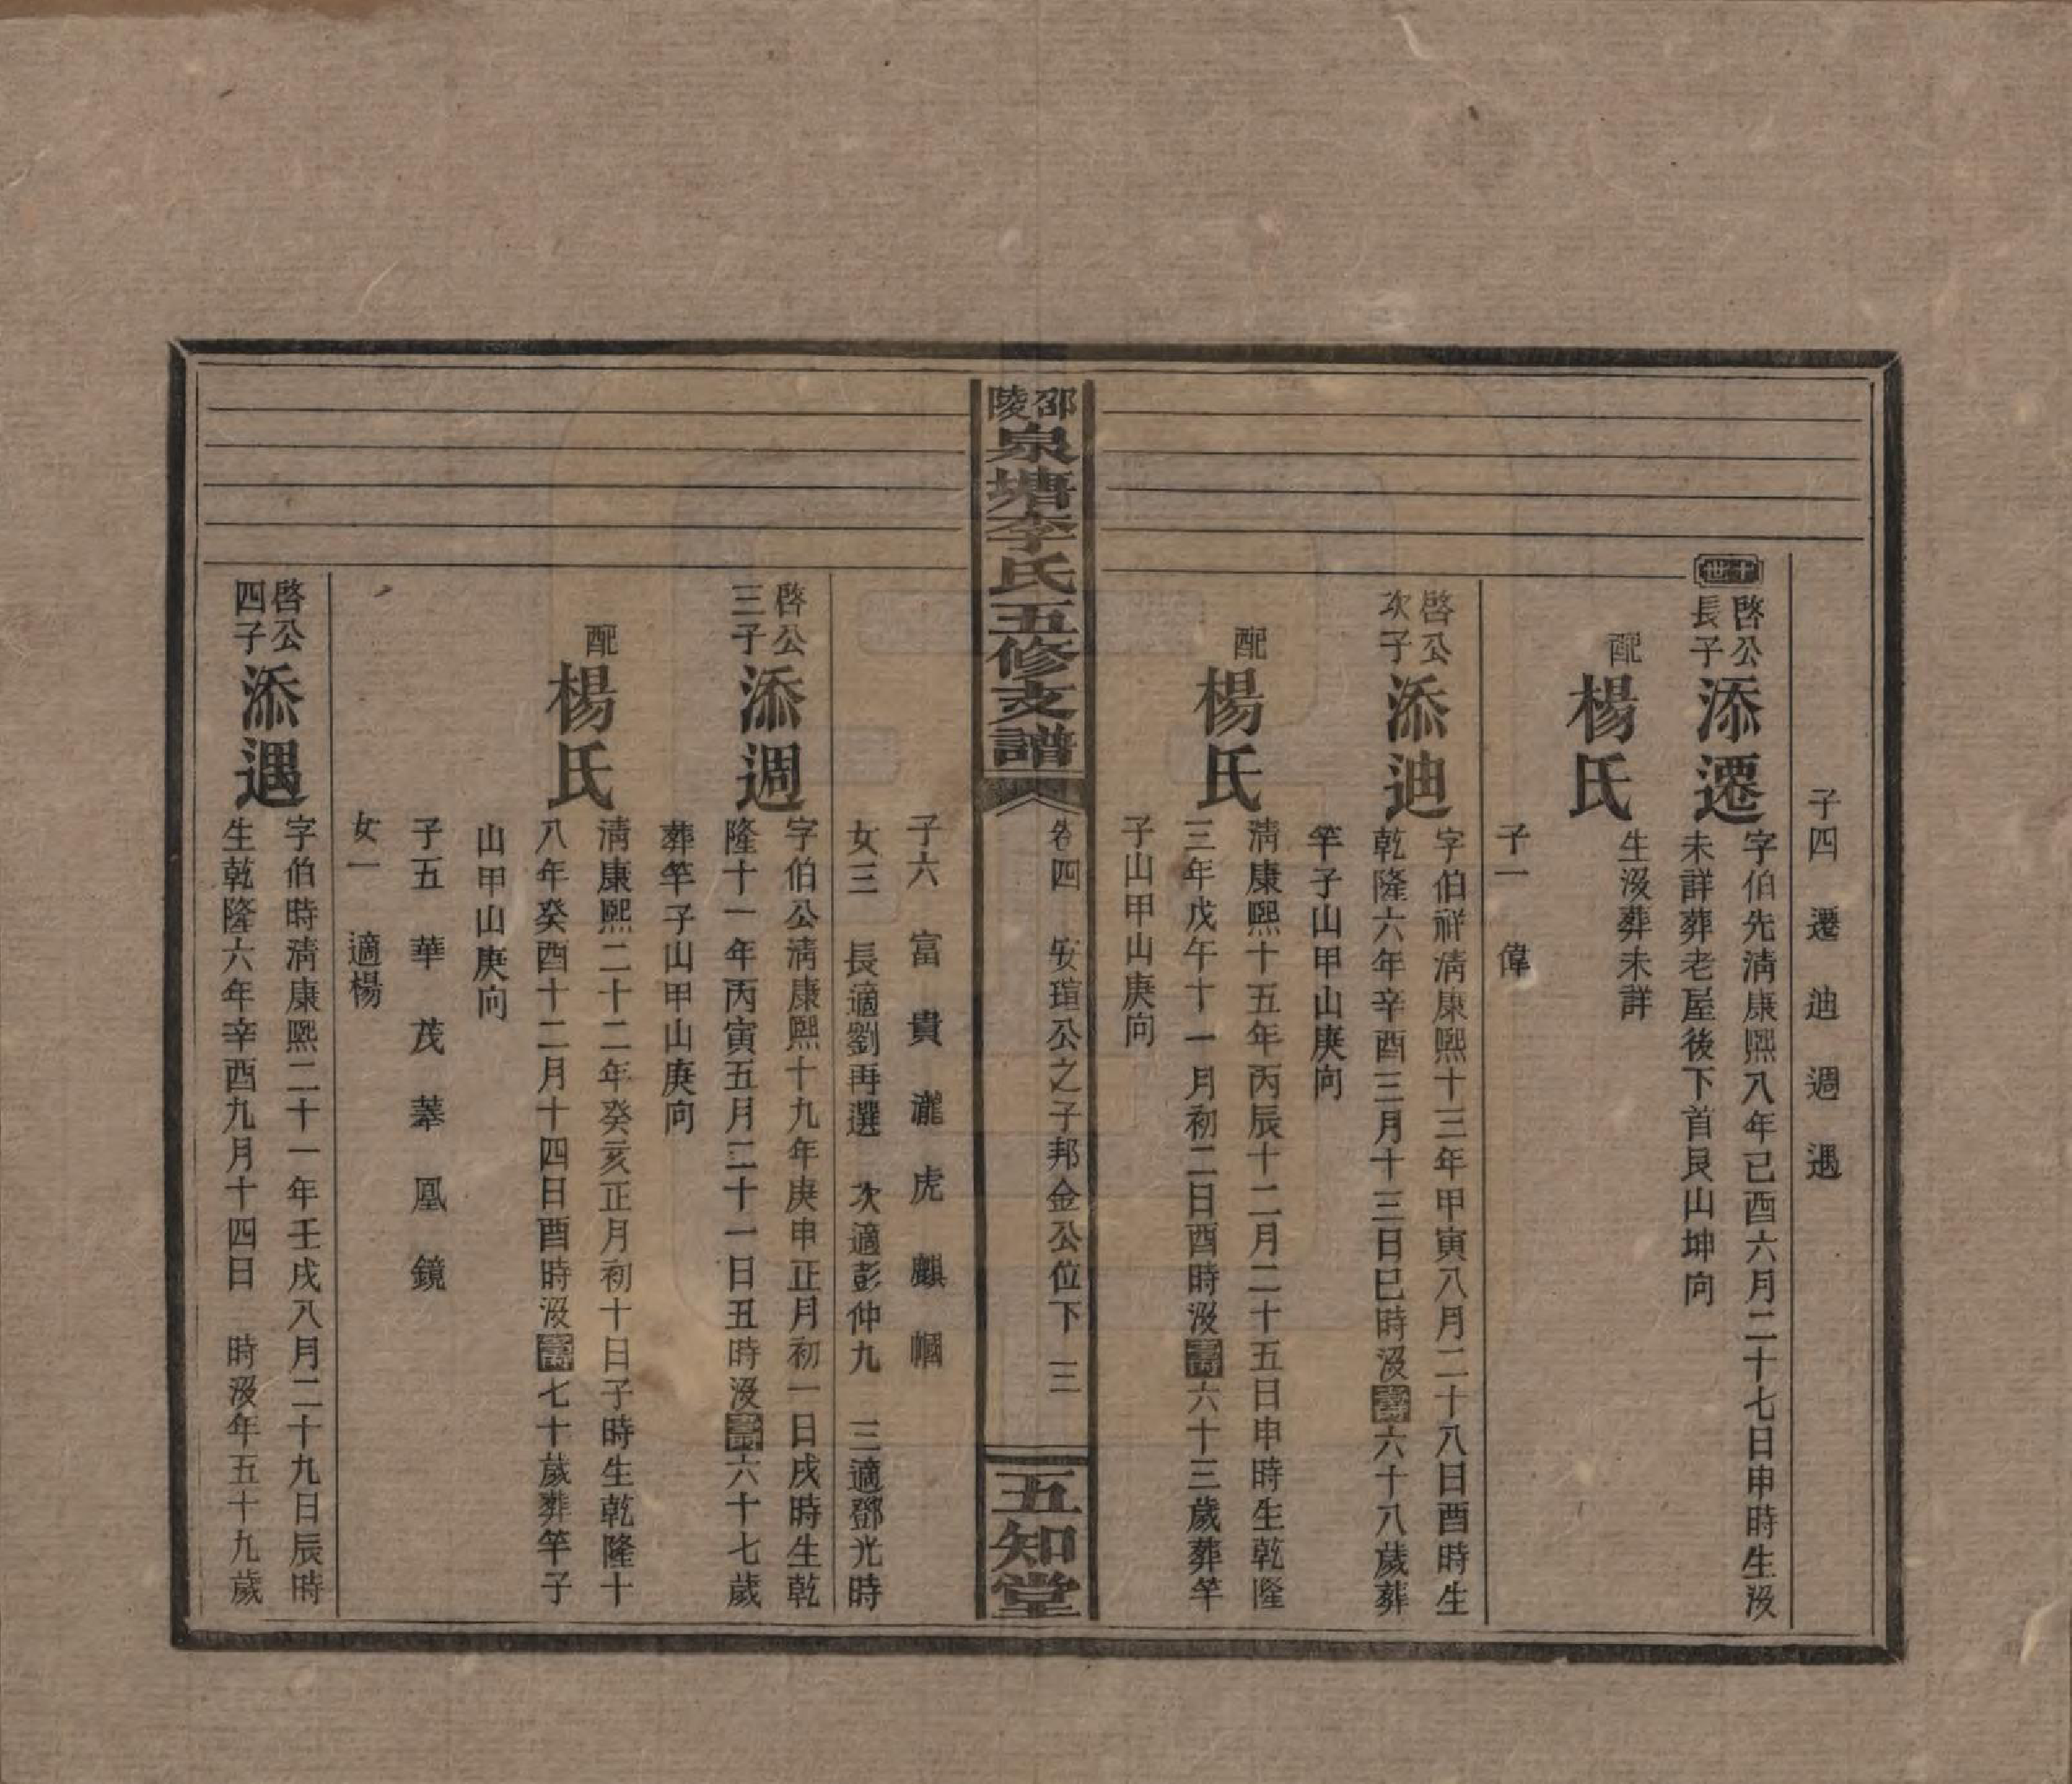 子四 遷 迪 週 遇
十世
啓公長子 添遷 字伯先淸康熙八年己酉六月二十七日申時生汲
未詳葬老屋後下首艮山坤向
配楊氏 生汲葬未詳
子一 偉
啓公次子 添迪 字伯祥淸康熙十三年甲寅八月二十八日酉時生
乾隆六年辛酉三月十三日巳時汲壽六十八歲葬
竿子山甲山庚向
配楊氏 淸康熙十五年丙辰十二月二十五日申時生乾隆
三年戊午十一月初二日酉時汲壽六十三歲葬竿
子山甲山庚向
邵陵泉塘李氏五修支譜 卷四 安瑄公之子邦金公位下 三 五知堂
子六 富 貴 瀧 虎 麒 幗
女三 長適劉再選 次適彭仲九 三適鄧光時
啓公三子 添週 字伯公淸康熙十九年庚申正月初一日戌時生乾
隆十一年丙寅五月二十一日丑時汲壽六十七歲
葬竿子山甲山庚向
配楊氏 淸康熙二十二年癸亥正月初十日子時生乾隆十
八年癸酉十二月十四日酉時汲壽七十歲葬竿子
山甲山庚向
子五 華 茂 蕚 凰 鏡
女一 適楊
啓公四子 添遇 字伯時淸康熙二十一年壬戌八月二十九日辰時
生乾隆六年辛酉九月十四日 時汲年五十九歲